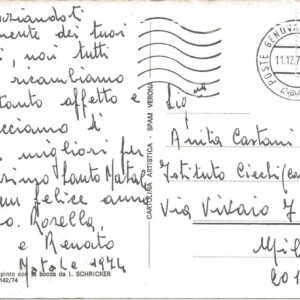 ziandoti
mente dei tuoi
i, noi tutti
ricambiamo
tanto affetto e
cciamo i
migliori per
simo Santo Natale
um felice anno
o. Rosella
e Renato
Natale 1974
pinto con la bocca da I. SCHRICKER
142/74
CARTOLINA ARTISTICA - SPAM VERONA
POSTE GENOVA
11.12.7
Anita Castani
Istituto Ciechi
Via Vivaio 7
Mil
201